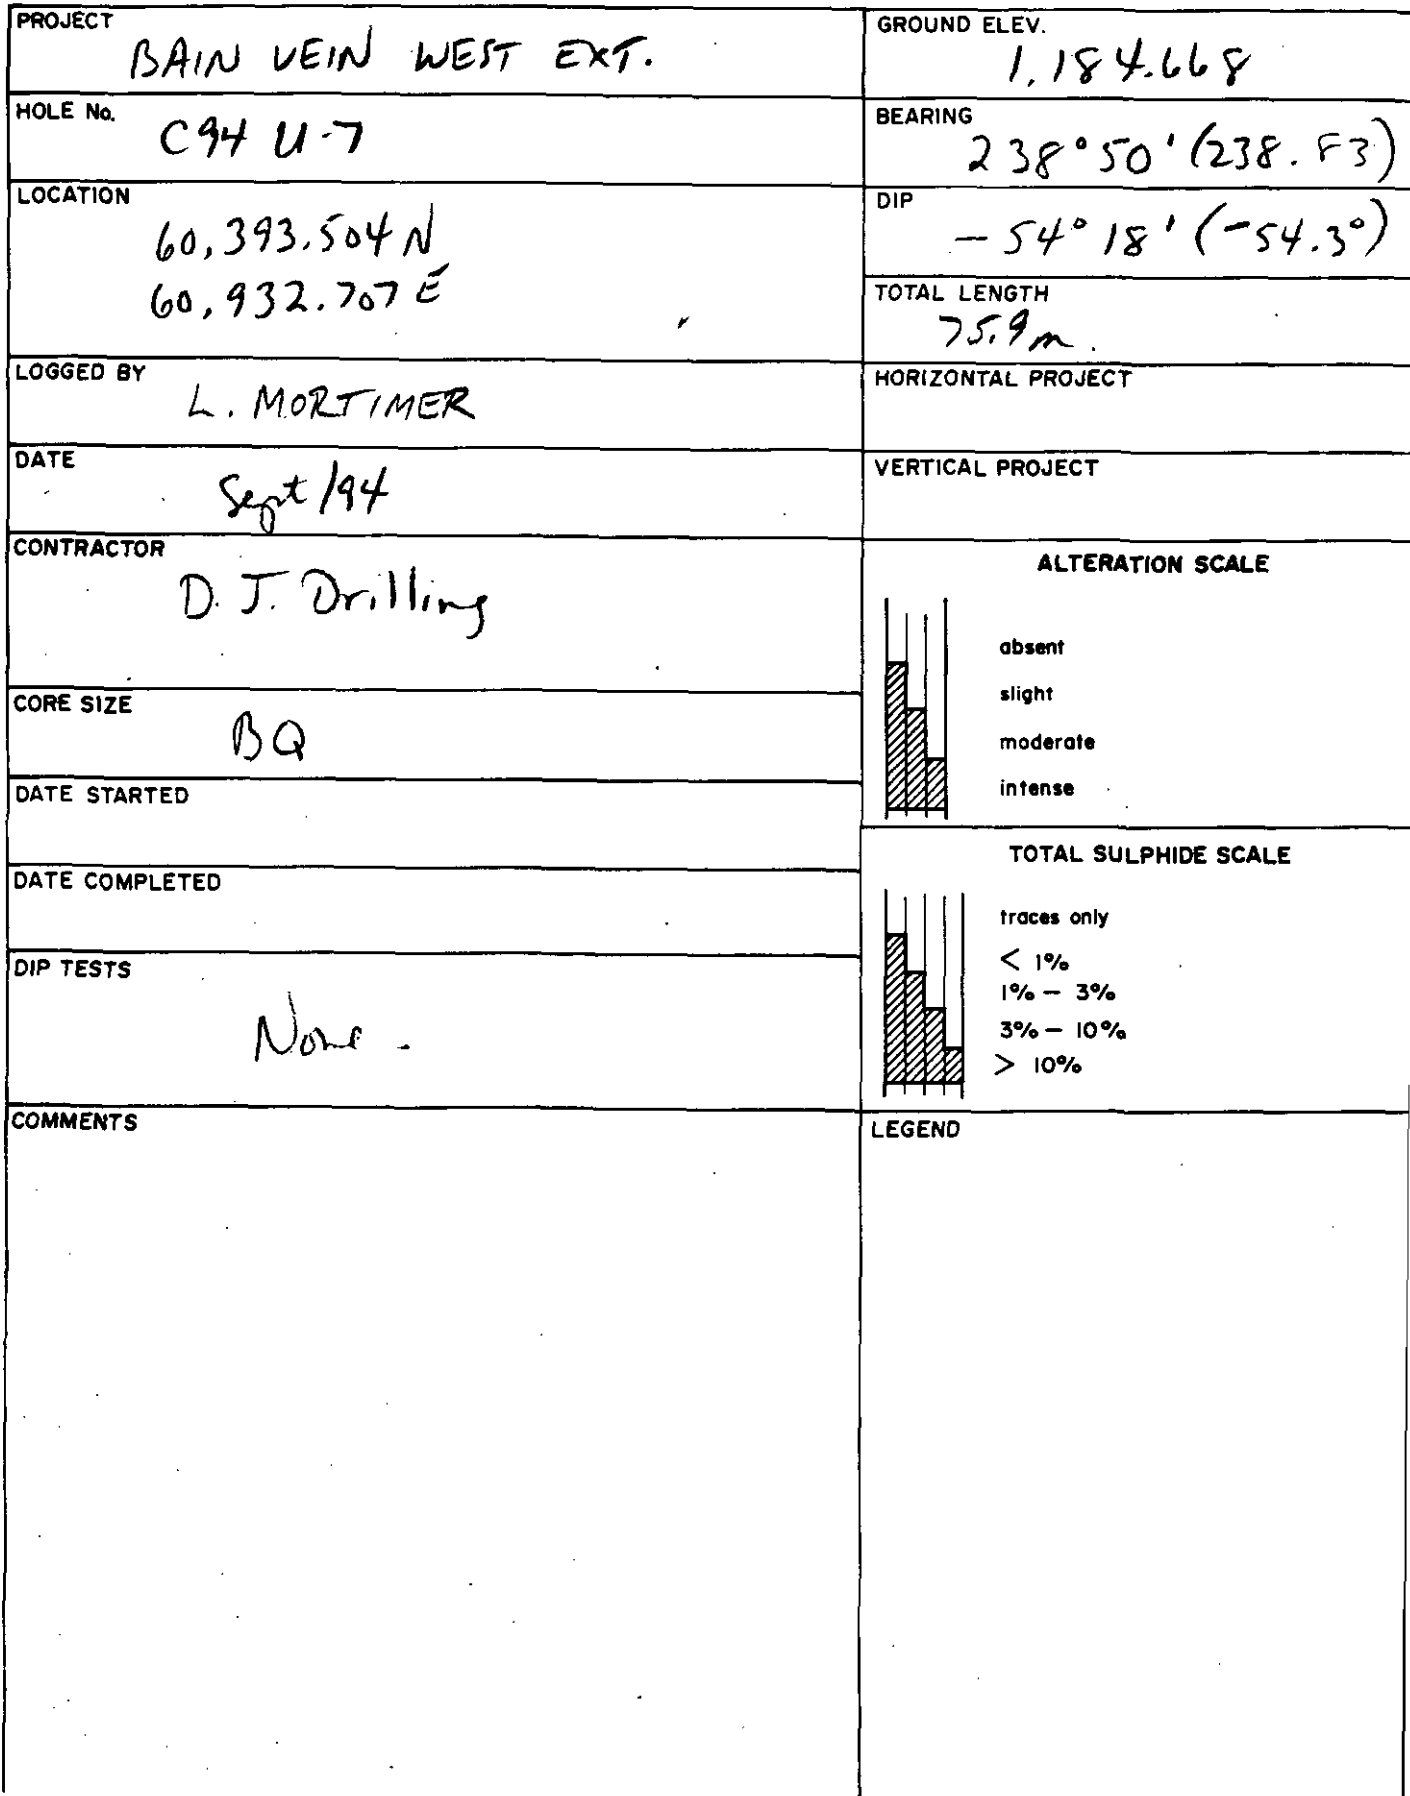 PROJECT
BAIN VEIN WEST EXT.
HOLE No.
C94 U-7
LOCATION
60,393.504 N
60,932.707 E
LOGGED BY
L. MORTIMER
DATE
Sept/94
CONTRACTOR
D. J. Drilling
CORE SIZE
BQ
DATE STARTED
DATE COMPLETED
DIP TESTS
None.
COMMENTS
GROUND ELEV.
1,184.668
BEARING
238°50' (238.83)
DIP
-54°18' (-54.3°)
TOTAL LENGTH
75.9m.
HORIZONTAL PROJECT
VERTICAL PROJECT
ALTERATION SCALE
absent
slight
moderate
intense
TOTAL SULPHIDE SCALE
traces only
< 1%
1% – 3%
3% – 10%
> 10%
LEGEND